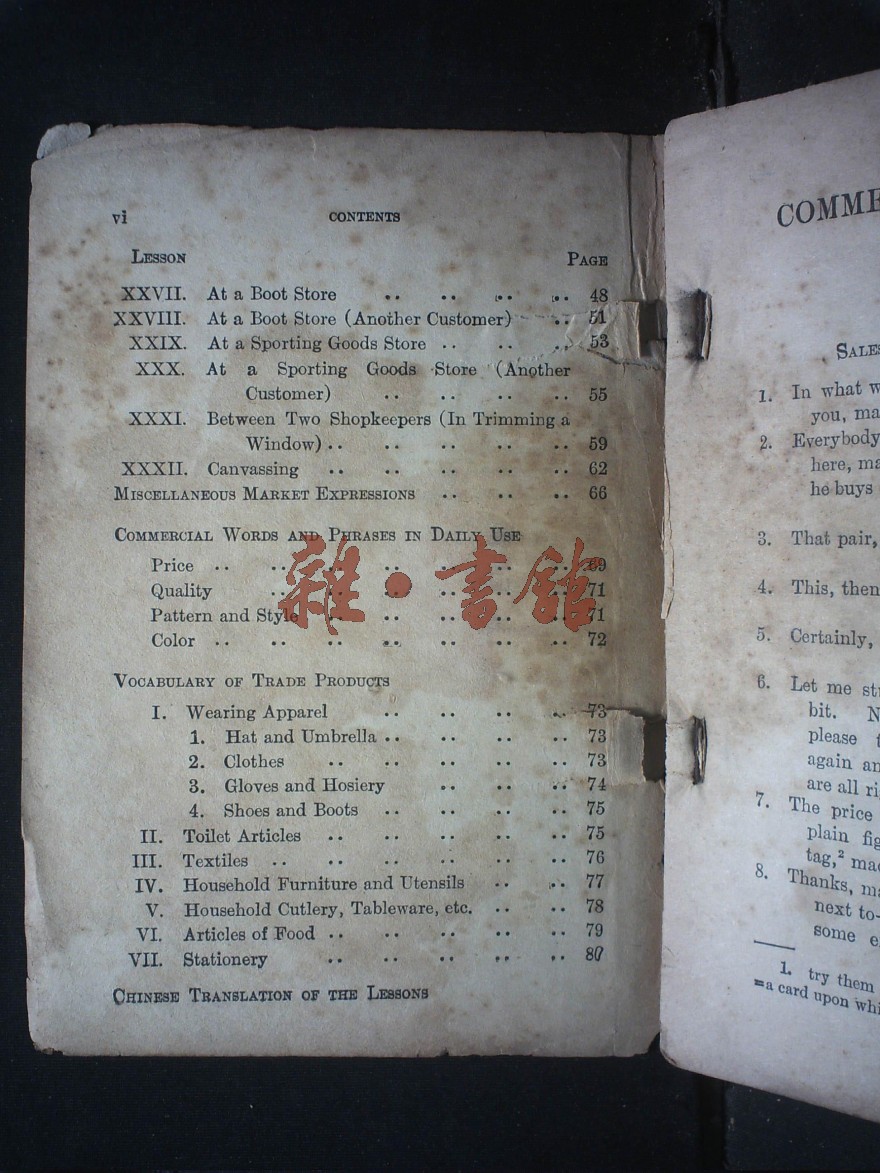 vi CONTENTS
LESSON PAGE
XXVII. At a Boot Store .. .. .. .. 48
XXVIII. At a Boot Store (Another Customer) .. 51
XXIX. At a Sporting Goods Store .. .. .. 53
XXX. At a Sporting Goods Store (Another
Customer) .. .. .. .. 55
XXXI. Between Two Shopkeepers (In Trimming a
Window) .. .. .. .. .. 59
XXXII. Canvassing .. .. .. .. .. 62
MISCELLANEOUS MARKET EXPRESSIONS .. .. .. 66
COMMERCIAL WORDS AND PHRASES IN DAILY USE
Price .. .. .. .. .. .. .. 69
Quality .. .. .. .. .. .. 71
Pattern and Style .. .. .. .. .. 71
Color .. .. .. .. .. .. .. 72
雜·書館
VOCABULARY OF TRADE PRODUCTS
I. Wearing Apparel .. .. .. .. 73
1. Hat and Umbrella .. .. .. .. 73
2. Clothes .. .. .. .. .. 73
3. Gloves and Hosiery .. .. .. 74
4. Shoes and Boots .. .. .. .. 75
II. Toilet Articles .. .. .. .. .. 75
III. Textiles .. .. .. .. .. .. 76
IV. Household Furniture and Utensils .. .. 77
V. Household Cutlery, Tableware, etc. .. .. 78
VI. Articles of Food .. .. .. .. .. 79
VII. Stationery .. .. .. .. .. 80
CHINESE TRANSLATION OF THE LESSONS
COMME
SALES
1. In what w
you, ma
2. Everybody
here, ma
he buys
3. That pair,
4. This, then
5. Certainly,
6. Let me str
bit. N
please t
again an
are all ri
7. The price
plain fig
tag,² mad
8. Thanks, ma
next to-
some e
1. try them
=a card upon whi